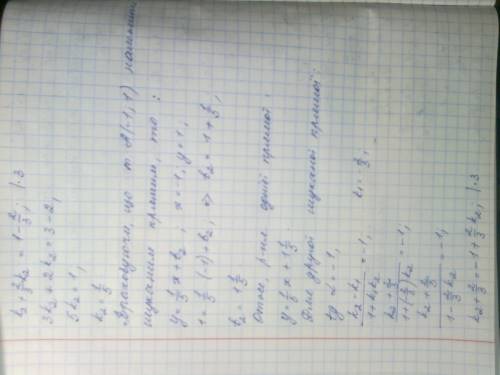 k₂ + 2/3 k₂ = 1 - 2/3; |·3
3k₂ + 2k₂ = 3 - 2,
5k₂ = 1,
k₂ = 1/5
Враховуючи, що т. A(-1; 1)
шуканим прямим, то:
y = 1/5 x + b₂; x = -1, y = 1,
1 = 1/5 · (-1) + b₂, => b₂ = 1 + 1/5;
b₂ = 1 1/5
Отже, р-ня одної прямої:
y = 1/5 x + 1 1/5.
Для другої шуканої прямої:
tg α = -1,
(k₂ - k₁)/(1 + k₁k₂) = -1, k₁ = -2/3,
(k₂ + 2/3)/(1 + (-2/3)k₂) = -1,
(k₂ + 2/3)/(1 - 2/3 k₂) = -1,
k₂ + 2/3 = -1 + 2/3 k₂, |·3